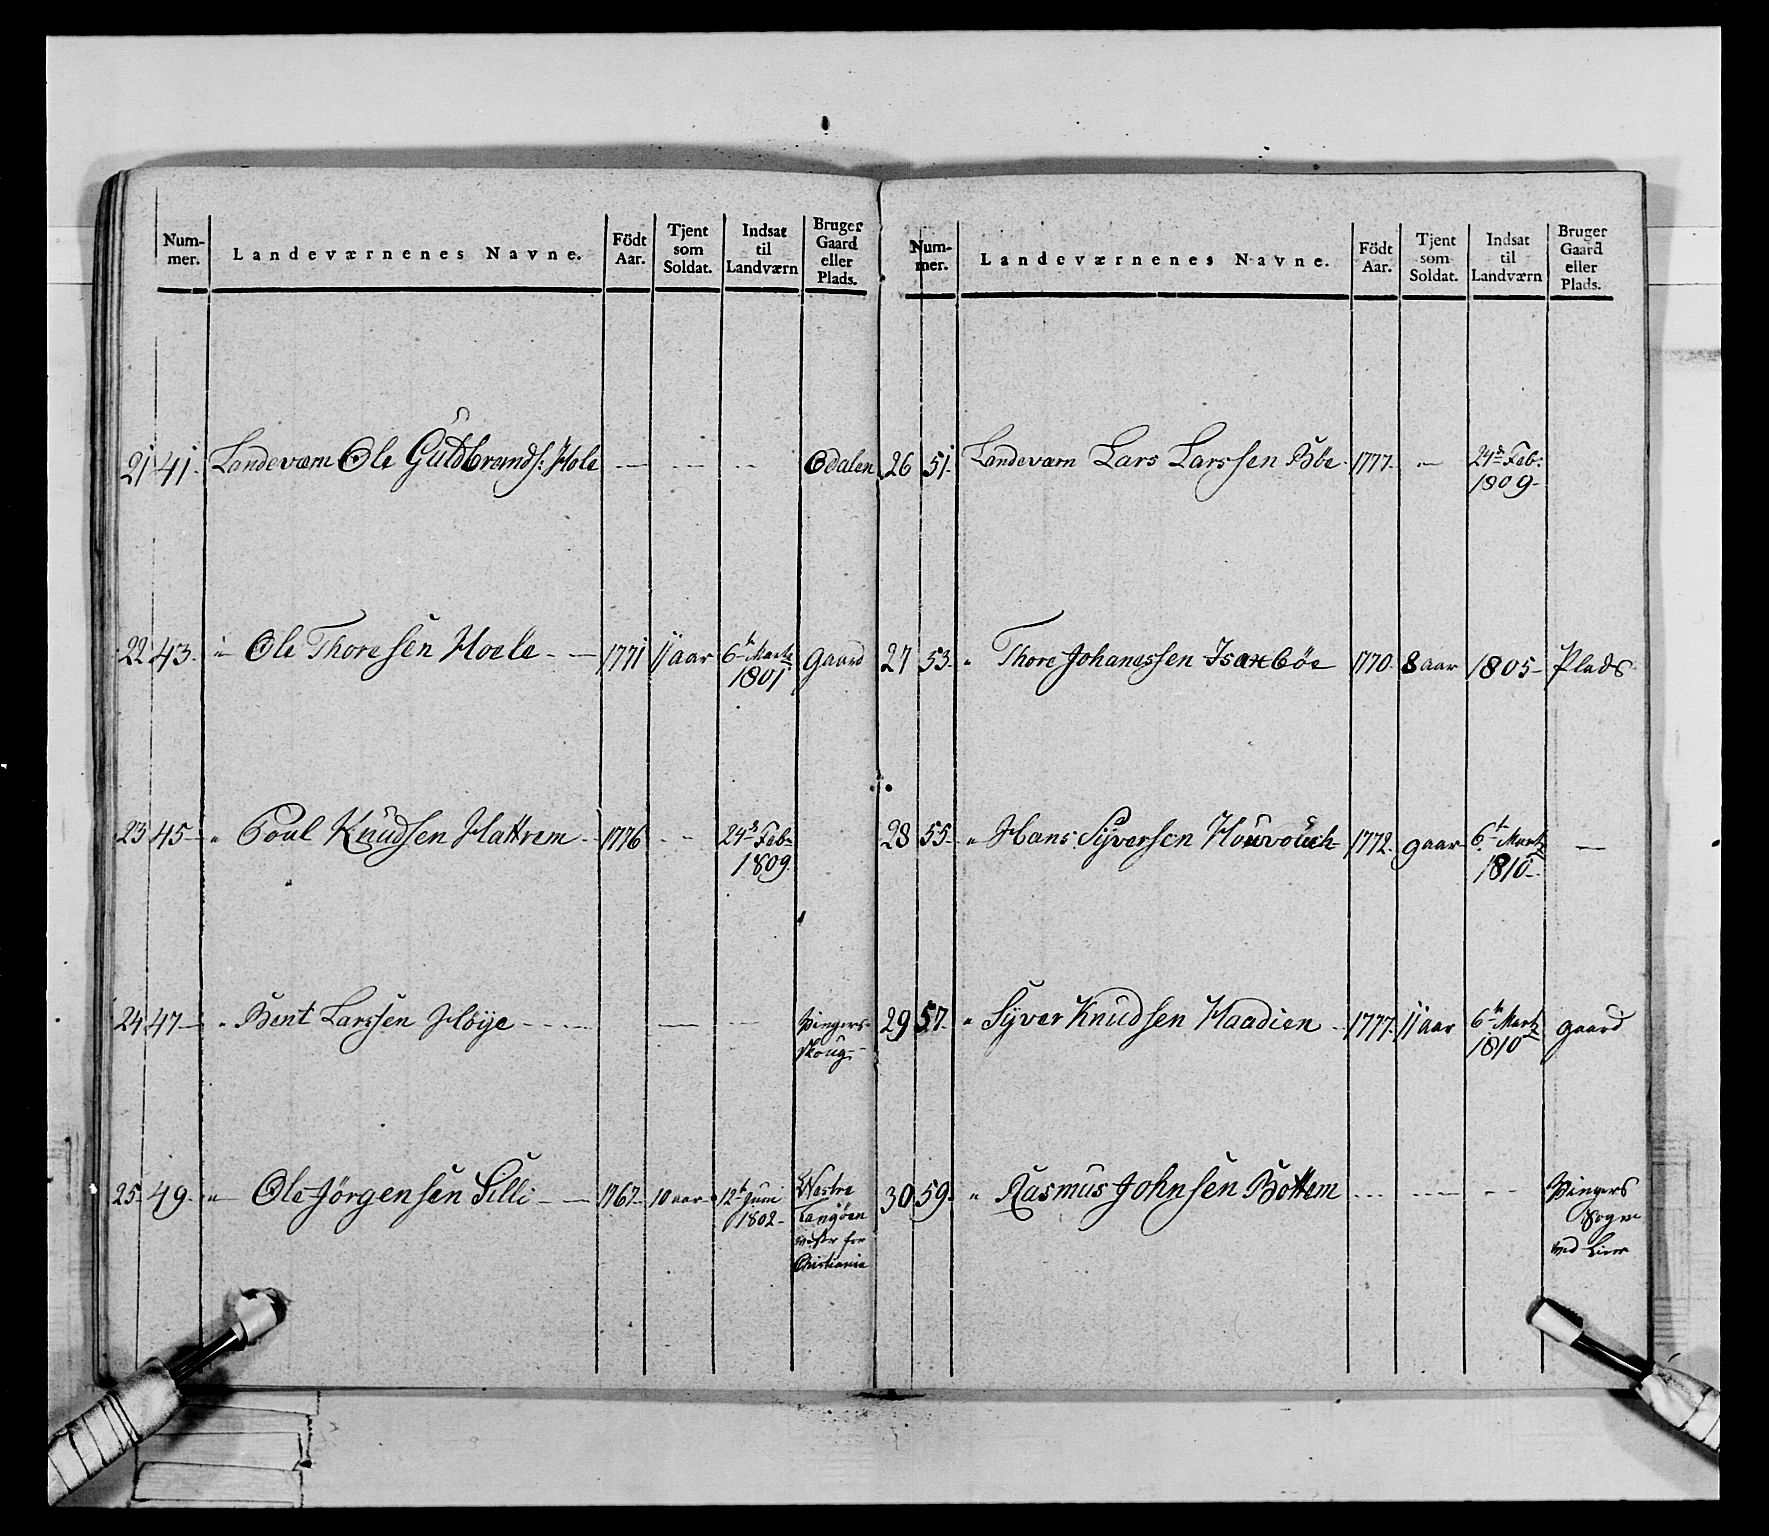 Num-
mer.
Landeværnenes Navne.
Födt
Aar.
Tjent
som
Soldat.
Indsat
til
Landværn
Bruger
Gaard
eller
Plads.
21 41. Landeværn Ole Guldbrands: Hole — — — Odalen
22 43. " Ole Thoresen Hoele — 1771 11 aar 6te Martz Gaard
1801
23 45 — " Poul Knudsen Hattrem — 1776 — 24de Feb:
1809.
24 47 — " Bent Larssen Høye — — — Vingers
skoug
25. 49. " Ole Jörgensen Silli — 1767. 10 aar 12te Juni Westre
1802 — Langöen
vester for
Christiania
Num-
mer.
Landeværnenes Navne.
Födt
Aar.
Tjent
som
Soldat.
Indsat
til
Landværn
Bruger
Gaard
eller
Plads.
26 51. Landeværn Lars Larssen Böe 1777. — 24de Feb:
1809.
27 53. " Thore Johanessen Isaxböe 1770. 8 aar 1805 — Plads
28 55 — " Hans Syversen 1772. 9 aar 6te Martz —
1810 —
29 57. " Syver Knudsen Haadien — 1777. 11 aar 6te Martz gaard
1810
30 59. " Rasmus Johnsen Bottem — — — Vingers
Sogn
ved Lier